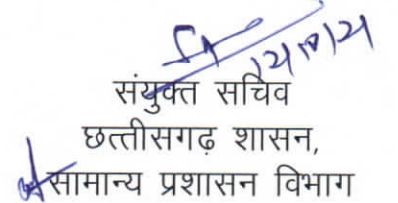 संयुक्त सचिव
छत्तीसगढ़ शासन,
सामान्य प्रशासन विभाग